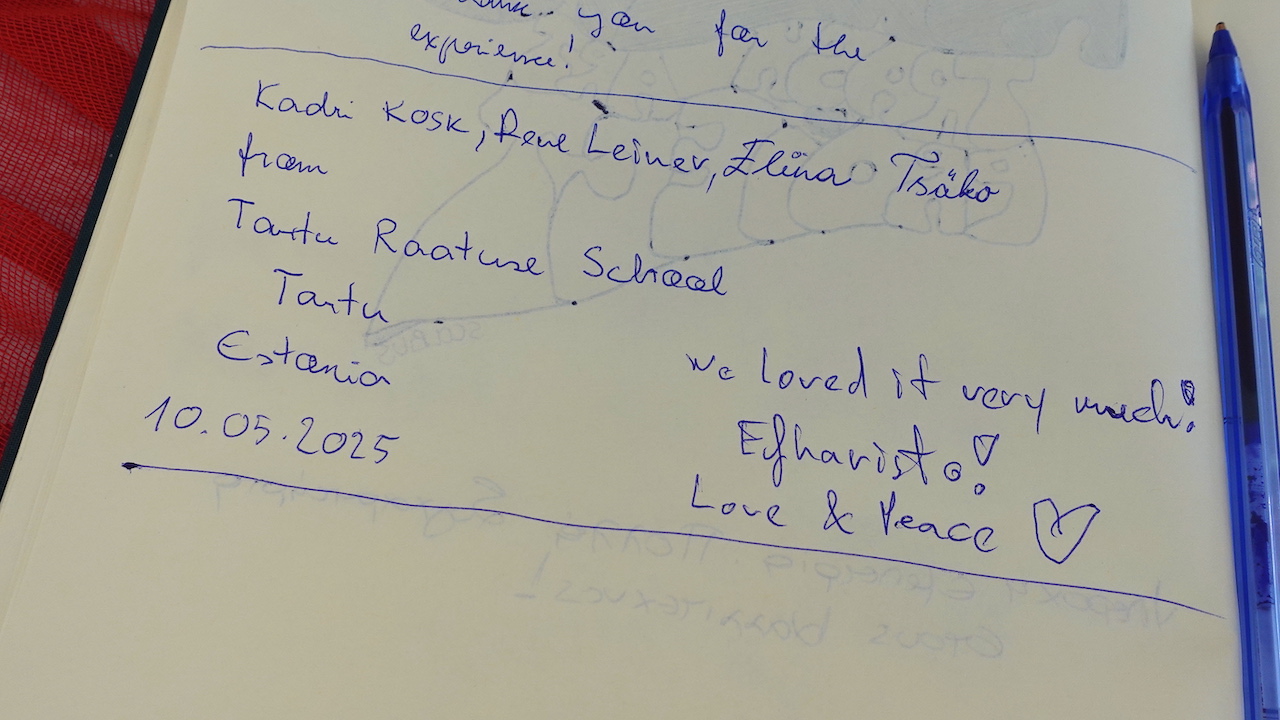 you for the
experience!
Kadri Kosk, Rene Leiner, Elina Tsäko
from
Tartu Raatuse School
Tartu
Estonia
10.05.2025
We loved it very much!
Efharisto!
Love & Peace